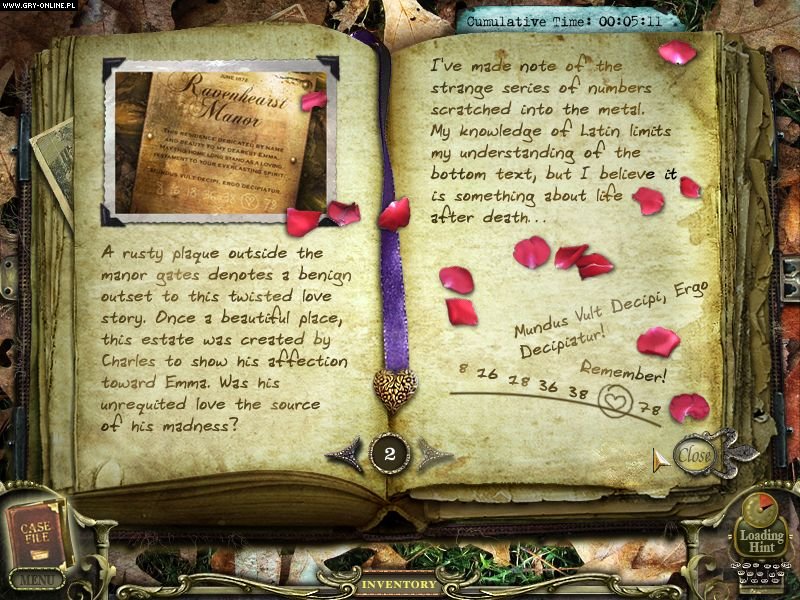 WWW.GRY-ONLINE.PL
Cumulative Time: 00:05:11
JUNE 1872
Ravenhearst
Manor
THIS RESIDENCE DEDICATED BY NAME
AND BEAUTY TO MY DEAREST EMMA.
MAY THIS HOME LONG STAND AS A LOVING
TESTAMENT TO YOUR EVERLASTING SPIRIT.
MUNDUS VULT DECIPI, ERGO DECIPIATUR.
A rusty plaque outside the
manor gates denotes a benign
outset to this twisted love
story. Once a beautiful place,
this estate was created by
Charles to show his affection
toward Emma. Was his
unrequited love the source
of his madness?
I've made note of the
strange series of numbers
scratched into the metal.
My knowledge of Latin limits
my understanding of the
bottom text, but I believe it
is something about life
after death...
Mundus Vult Decipi, Ergo
Decipiatur!
Remember!
8 16 18 36 38 78
2
Close
CASE
FILE
MENU
INVENTORY
Loading
Hint